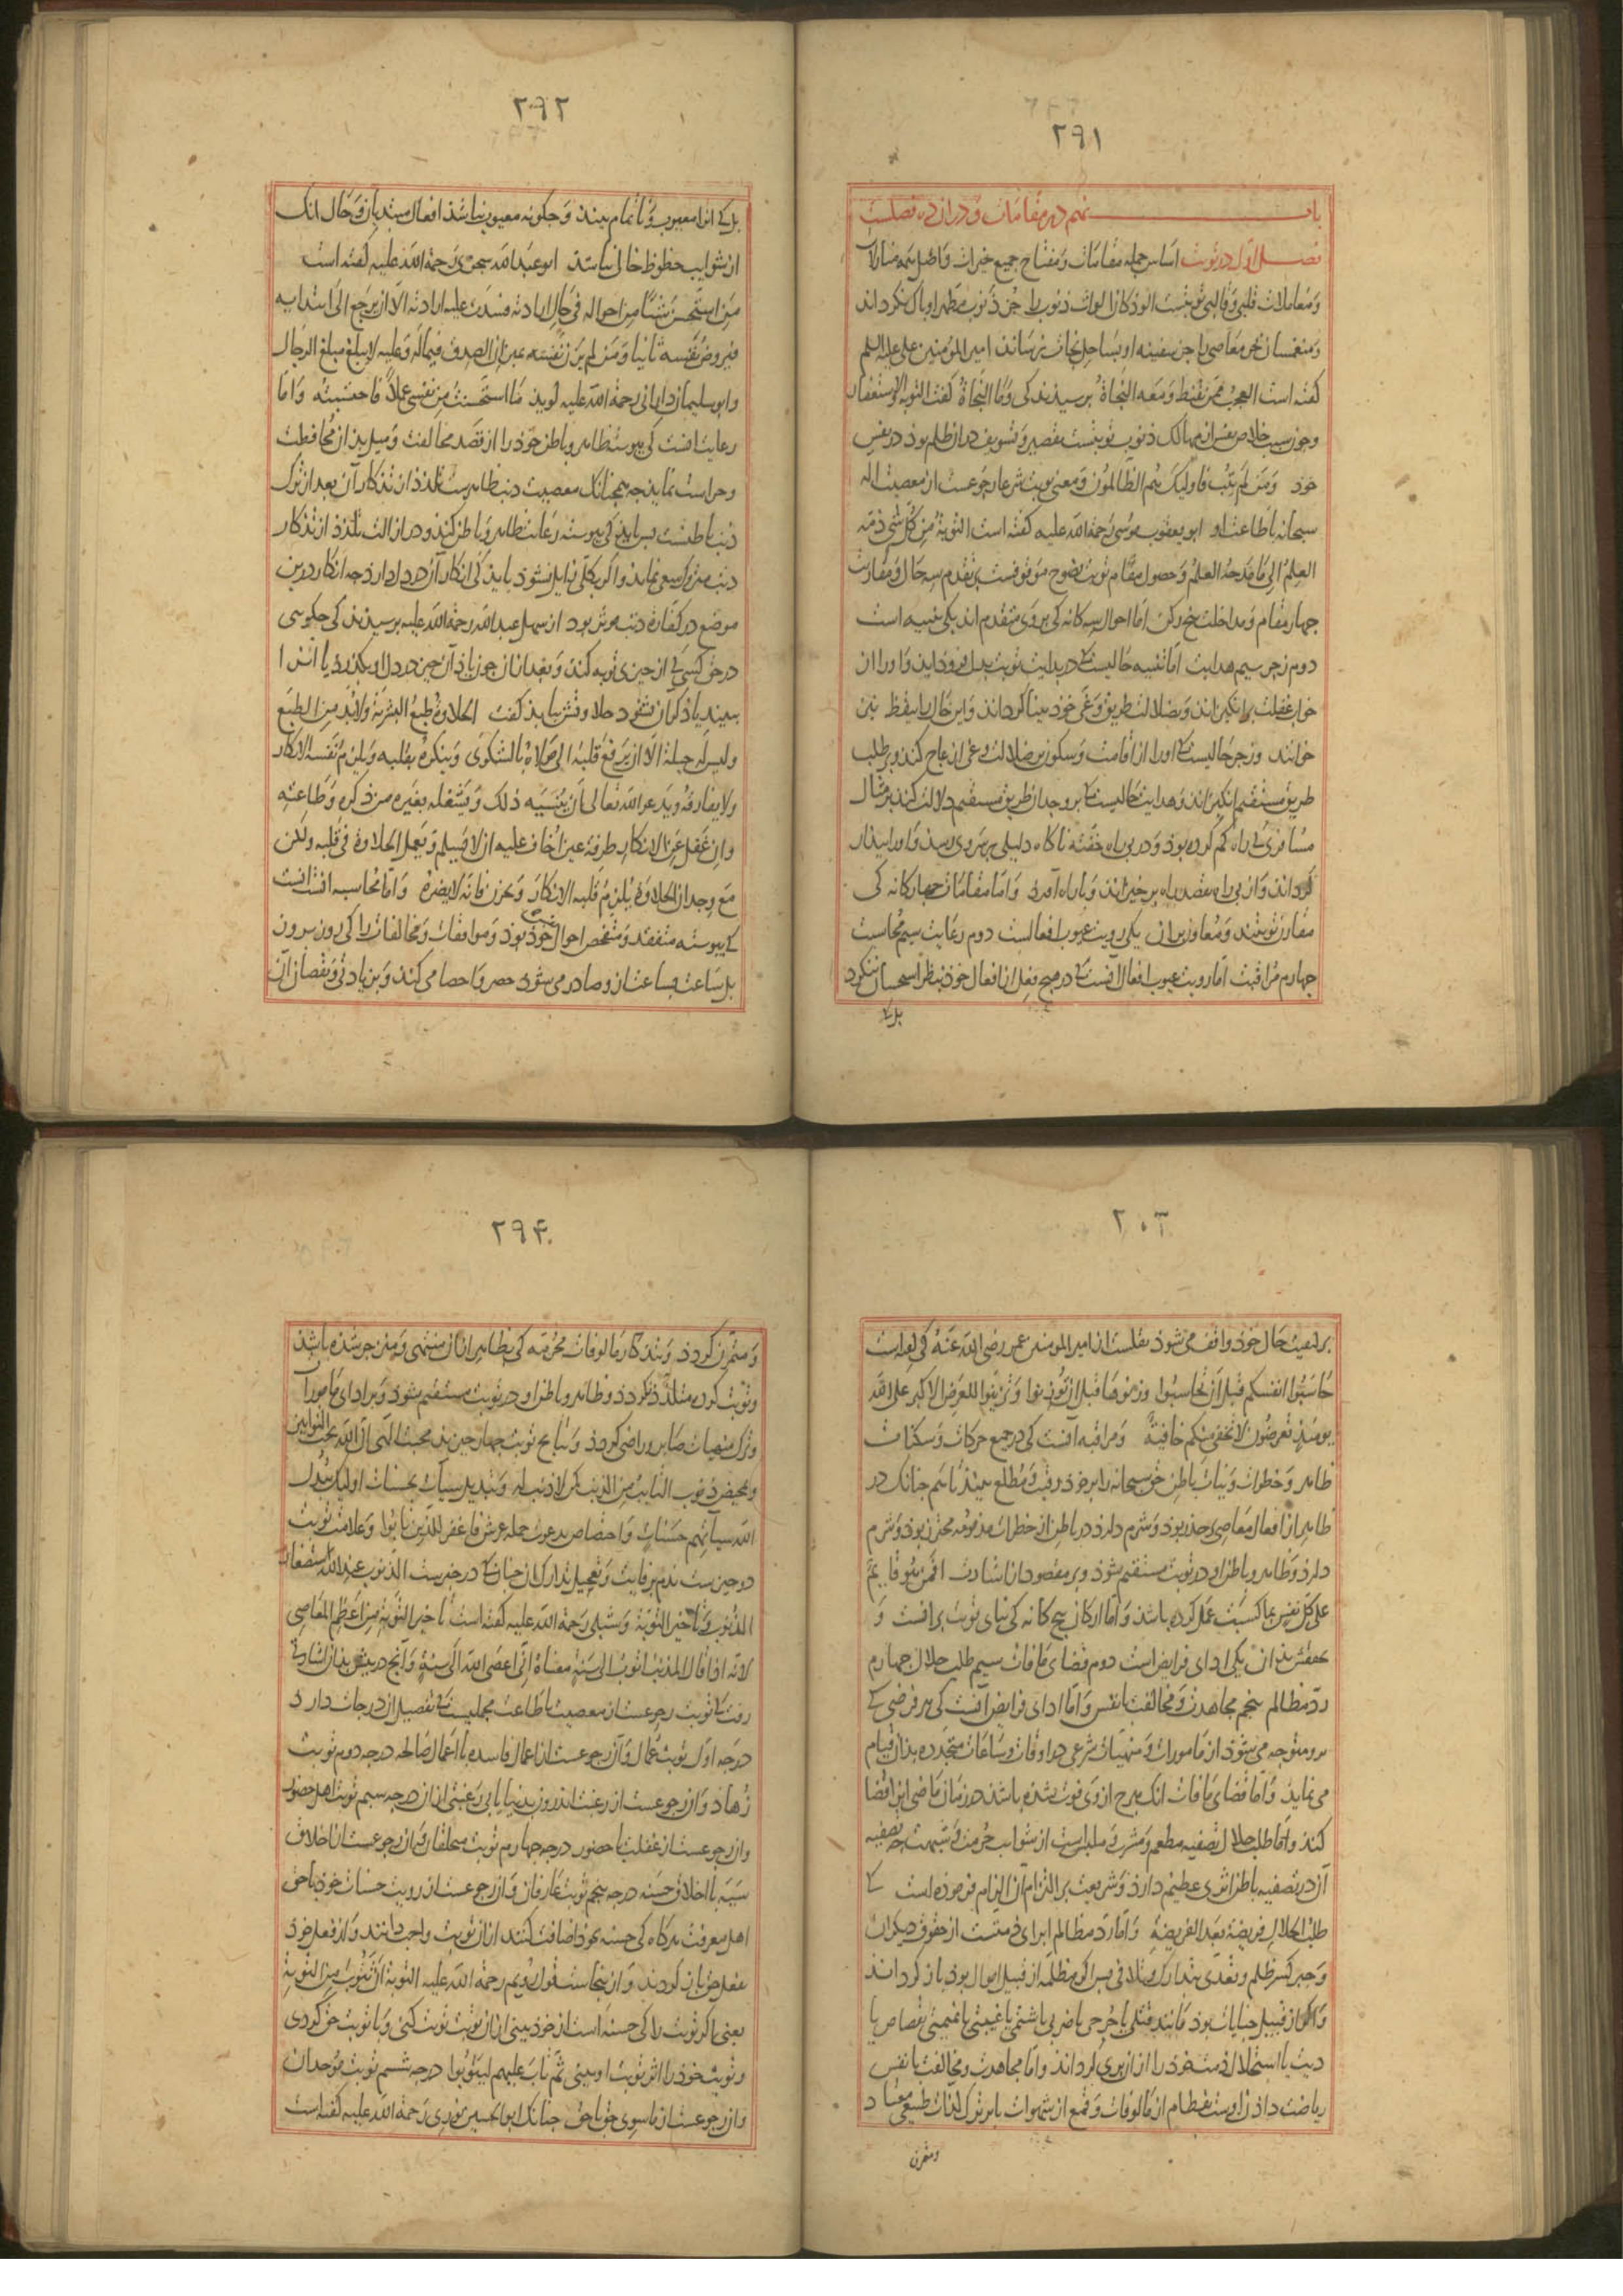 ٢٩١
باب نهم در مقامات و در ان ده فصلست
فصل اول در توبت اساس جمله مقامات و مفتاح جمیع خیرات و اصل همه منازلات
و معاملات قلبی و قالبی توبتست الوذکان الواث ذنوب را جز ذنوب مطهر او پاک نکرداند
و منغمسان بحر معاصی را جز سفینه او بساحل نجات نرساند امیر المومنین علی علیه السلم
کفته است العجب ممن یقنط و معه النجاة پرسیدند کی و ما النجاة کفت التوبه و الاستغفار
و چون سبب خلاص نفس از مهالک ذنوب توبتست تقصیر و تسویف در ان ظلم بود در نفس
خود و من لم یتب فاولیک هم الظالمون و معنی توبت شرعا رجوعست از معصیت اله
سبحانه باطاعت او ابو یعقوب سوسی رحمة الله علیه کفته است التوبة من کل شی ذمه
العلم الی ما مدحه العلم و حصول مقام توبت نصوح موقوفست بر تقدم سه حال و مقارنت
چهار مقام و مداخلت پنج رکن اما احوال سه کانه کی بر وی متقدم اند یکی تنبیه است
دوم زجر سیم هدایت اما تنبیه حالیست کی در بدایت توبت بدل فرو داید و او را از
خواب غفلت برانکیزاند و بضلالت طریق و غی خود بینا کرداند و این حال را تیقظ نیز
خوانند و زجر حالیست کی او را از اقامت و سکون بر ضلالت و غی ازعاج کند و بر طلب
طریق مستقیم انکیزاند و هدایت حالیست کی بر وجدان طریق مستقیم دلالت کند بر مثال
مسافری کی راه کم کرده بود و در بی راه خفته ناکاه دلیلی بر سر وی رسد و او را بیدار
کرداند و ان بی راه بقصد راه بر خیزاند و با راه آرد و اما مقامات چهارکانه کی
مقارن توبتند و معاون ان یکی رویت عیوب افعالست دوم رعایت سیم محاسبت
چهارم مراقبت اما رویت عیوب افعال آنست کی در هیچ فعل از افعال خود بنظر استحسان ننکرد
بل کی
٢٩٢
بل کی انرا معیوب و ناتمام بیند و چکونه معیوب نباشد افعال مبتدیان و حال انک
از شوایب حظوظ خالی نباشد ابو عبد الله سجزی رحمة الله علیه کفته است
من استحسن شیئا من احواله فی حال ارادته فسدت علیه ارادته الا ان یرجع الی ابتدایه
فیروض نفسه ثانیا و من لم یزن نفسه بمیزان الصدق فیما له و علیه لا یبلغ مبلغ الرجال
و ابو سلیمان دارانی رحمة الله علیه کوید ما استحسنت من نفسی عملا فاحتسبته و اما
رعایت انست کی پیوسته ظاهر و باطن خود را از قصد مخالفت و میل بدان محافظت
و حراست نماید چه همچنانک معصیت ذنب ظاهرست تلذذ از تذکار آن بعد از ترک
ذنب باطنست پس باید کی پیوسته رعایت ظاهر و باطن کند و در ازالت تلذذ از تذکار
ذنب متروک سعی نماید و اکر بکلی زایل نشود باید کی انکار آن در دل دارد چه انکار درین
موضع در کفارت ذنب موثر بود از سهل عبد الله رحمة الله علیه پرسیدند کی چکویی
در حق کسی کی از چیزی توبه کند و بعد از ان چون یاد آن چیز در دل او بکذرد یا انرا
ببیند یا ذکر آن شنود حلاوتش بیابد کفت الحلاوة طبع البشریة و لابد من الطبع
و لیس له حیلة الا ان یرفع قلبه الی مولاه بالشکوی و ینکره بقلبه و یلزم نفسه الانکار
و لا یفارقه و یدعو الله تعالی ان ینسیه ذلک و یشغله بغیره من ذکره و طاعته
و ان غفل عن الانکار طرفة عین اخاف علیه ان لا یسلم و یعمل الحلاوة فی قلبه و لکن
مع وجدان الحلاوة یلزم قلبه الانکار و یحزن فانه لا یضره و اما محاسبه انست
کی پیوسته متفقد و متفحص احوال خود بود و موافقات و مخالفات را کی روز بروز
بل ساعت بساعت از و صادر می شود حصر و احصا می کند و بزیادت و نقصان آن
٢٠٣
بر کیفیت حال خود واقف می شود نقلست از امیر المومنین عمر رضی الله عنه کی کفته است
حاسبوا انفسکم قبل ان تحاسبوا و زنوها قبل ان توزنوا و تزینوا للعرض الاکبر علی الله
یومئذ تعرضون لا تخفی منکم خافیة و مراقبه آنست کی در جمیع حرکات و سکنات
ظاهر و خطرات و نیات باطن حق سبحانه را بر خود رقیب و مطلع بیند تا هم چنانک در
ظاهر از افعال معاصی بر حذر بود و شرم دارد در باطن از خطرات مذمومه محترز بود و شرم
دارد و ظاهر و باطن او در توبت مستقیم شود و بر مقصود از اشارت افمن هو قایم
علی کل نفس بما کسبت عمل کرده باشد و اما ارکان پنج کانه کی بنای توبت برانست و
تحققش بدان یکی ادای فرایض است دوم قضای مافات سیم طلب حلال چهارم
رد مظالم پنجم مجاهدت و مخالفت با نفس و اما ادای فرایض آنست کی هر فرضی کی
برو متوجه می شود از مامورات و منهیات شرعی در اوقات و ساعات متجدده بدان قیام
می نماید و اما قضای مافات انک هرچ از وی فوت شده باشد در زمان ماضی انرا قضا
کند و اما طلب حلال تصفیه مطعم و مشرب و ملبس است از شوایب حرمت و شبهت چه تصفیه
آن در تصفیه باطن اثری عظیم دارد و شریعت بر التزام آن الزام فرموده است کی
طلب الحلال فریضة بعد الفریضة و اما رد مظالم ابرای ذمتست از حقوق دیکران
و جبر کسر ظلم و تعدی بتدارک و تلافی پس اکر مظلمه از قبیل اموال بود باز کرداند
و اکر از قبیل جنایات بود مانند قتلی یا جرحی یا ضربی یا شتمی یا غیبتی یا نمیمتی بقصاص یا
دیت یا استحلال ذمت خود را از ان بری کرداند و اما مجاهدت و مخالفت با نفس
ریاضت دادن اوست بفطام از مالوفات و قمع از شهوات بابر ترک لذات طبیعی معتاد
و متمرن
٢٩۴
و متمرن کردد و بتذکار مالوفات محرمه کی بظاهر از ان منتهی و منزجر شده باشد
و توبت کرده متلذذ نکردد و ظاهر و باطن او در توبت مستقیم شود و بر ادای مامورات
و ترک منهیات صابر و راضی کردد و نتایج توبت چهار چیزند محبت الهی ان الله یحب التوابین
و تمحیص ذنوب التایب من الذنب کمن لا ذنب له و تبدیل سیآت بحسنات اولیک یبدل
الله سیآتهم حسنات و اختصاص بدعوت حمله عرش فاغفر للذین تابوا و علامت توبت
دو چیزست ندم بر فایت و تعجیل تدارک ان چنانک در خبرست الذنوب عند الله استصغار
الذنوب و تاخیر التوبة و شبلی رحمة الله علیه کفته است تاخیر التوبة من اعظم المعاصی
لانه اذا قال المذنب اتوب الی سنة معناه انی اعصی الله الی سنة و آنچ در پیش بدان اشارت
رفت کی توبت رجوعست از معصیت باطاعت مجملیست کی تفصیل ان درجات دارد
درجه اول توبت عمال و آن رجوعست از اعمال فاسده با اعمال صالحه درجه دوم توبت
زهاد و ان رجوعست از رغبت اندرون بدنیا با بی رغبتی از ان درجه سیم توبت اهل حضور
و ان رجوعست از غفلت با حضور درجه چهارم توبت متخلقان و ان رجوعست از اخلاق
سییه با اخلاق حسنه درجه پنجم توبت عارفان و ان رجوعست از رویت حسنات خود با حق
اهل معرفت هر کاه کی حسنه بخود اضافت کنند از ان توبت واجب دانند و از فعل خود
بفعل حق باز کردند و از ینجاست قول رویم رحمة الله علیه التوبة ان تتوب من التوبة
یعنی اکر توبت را کی حسنه است از خود بینی از ان توبت توبت کنی و با توبت حق کردی
و توبت خود را اثر توبت او بینی ثم تاب علیهم لیتوبوا درجه ششم توبت موحدان
و ان رجوعست از ماسوی حق با حق چنانک ابو الحسین نوری رحمة الله علیه کفته است